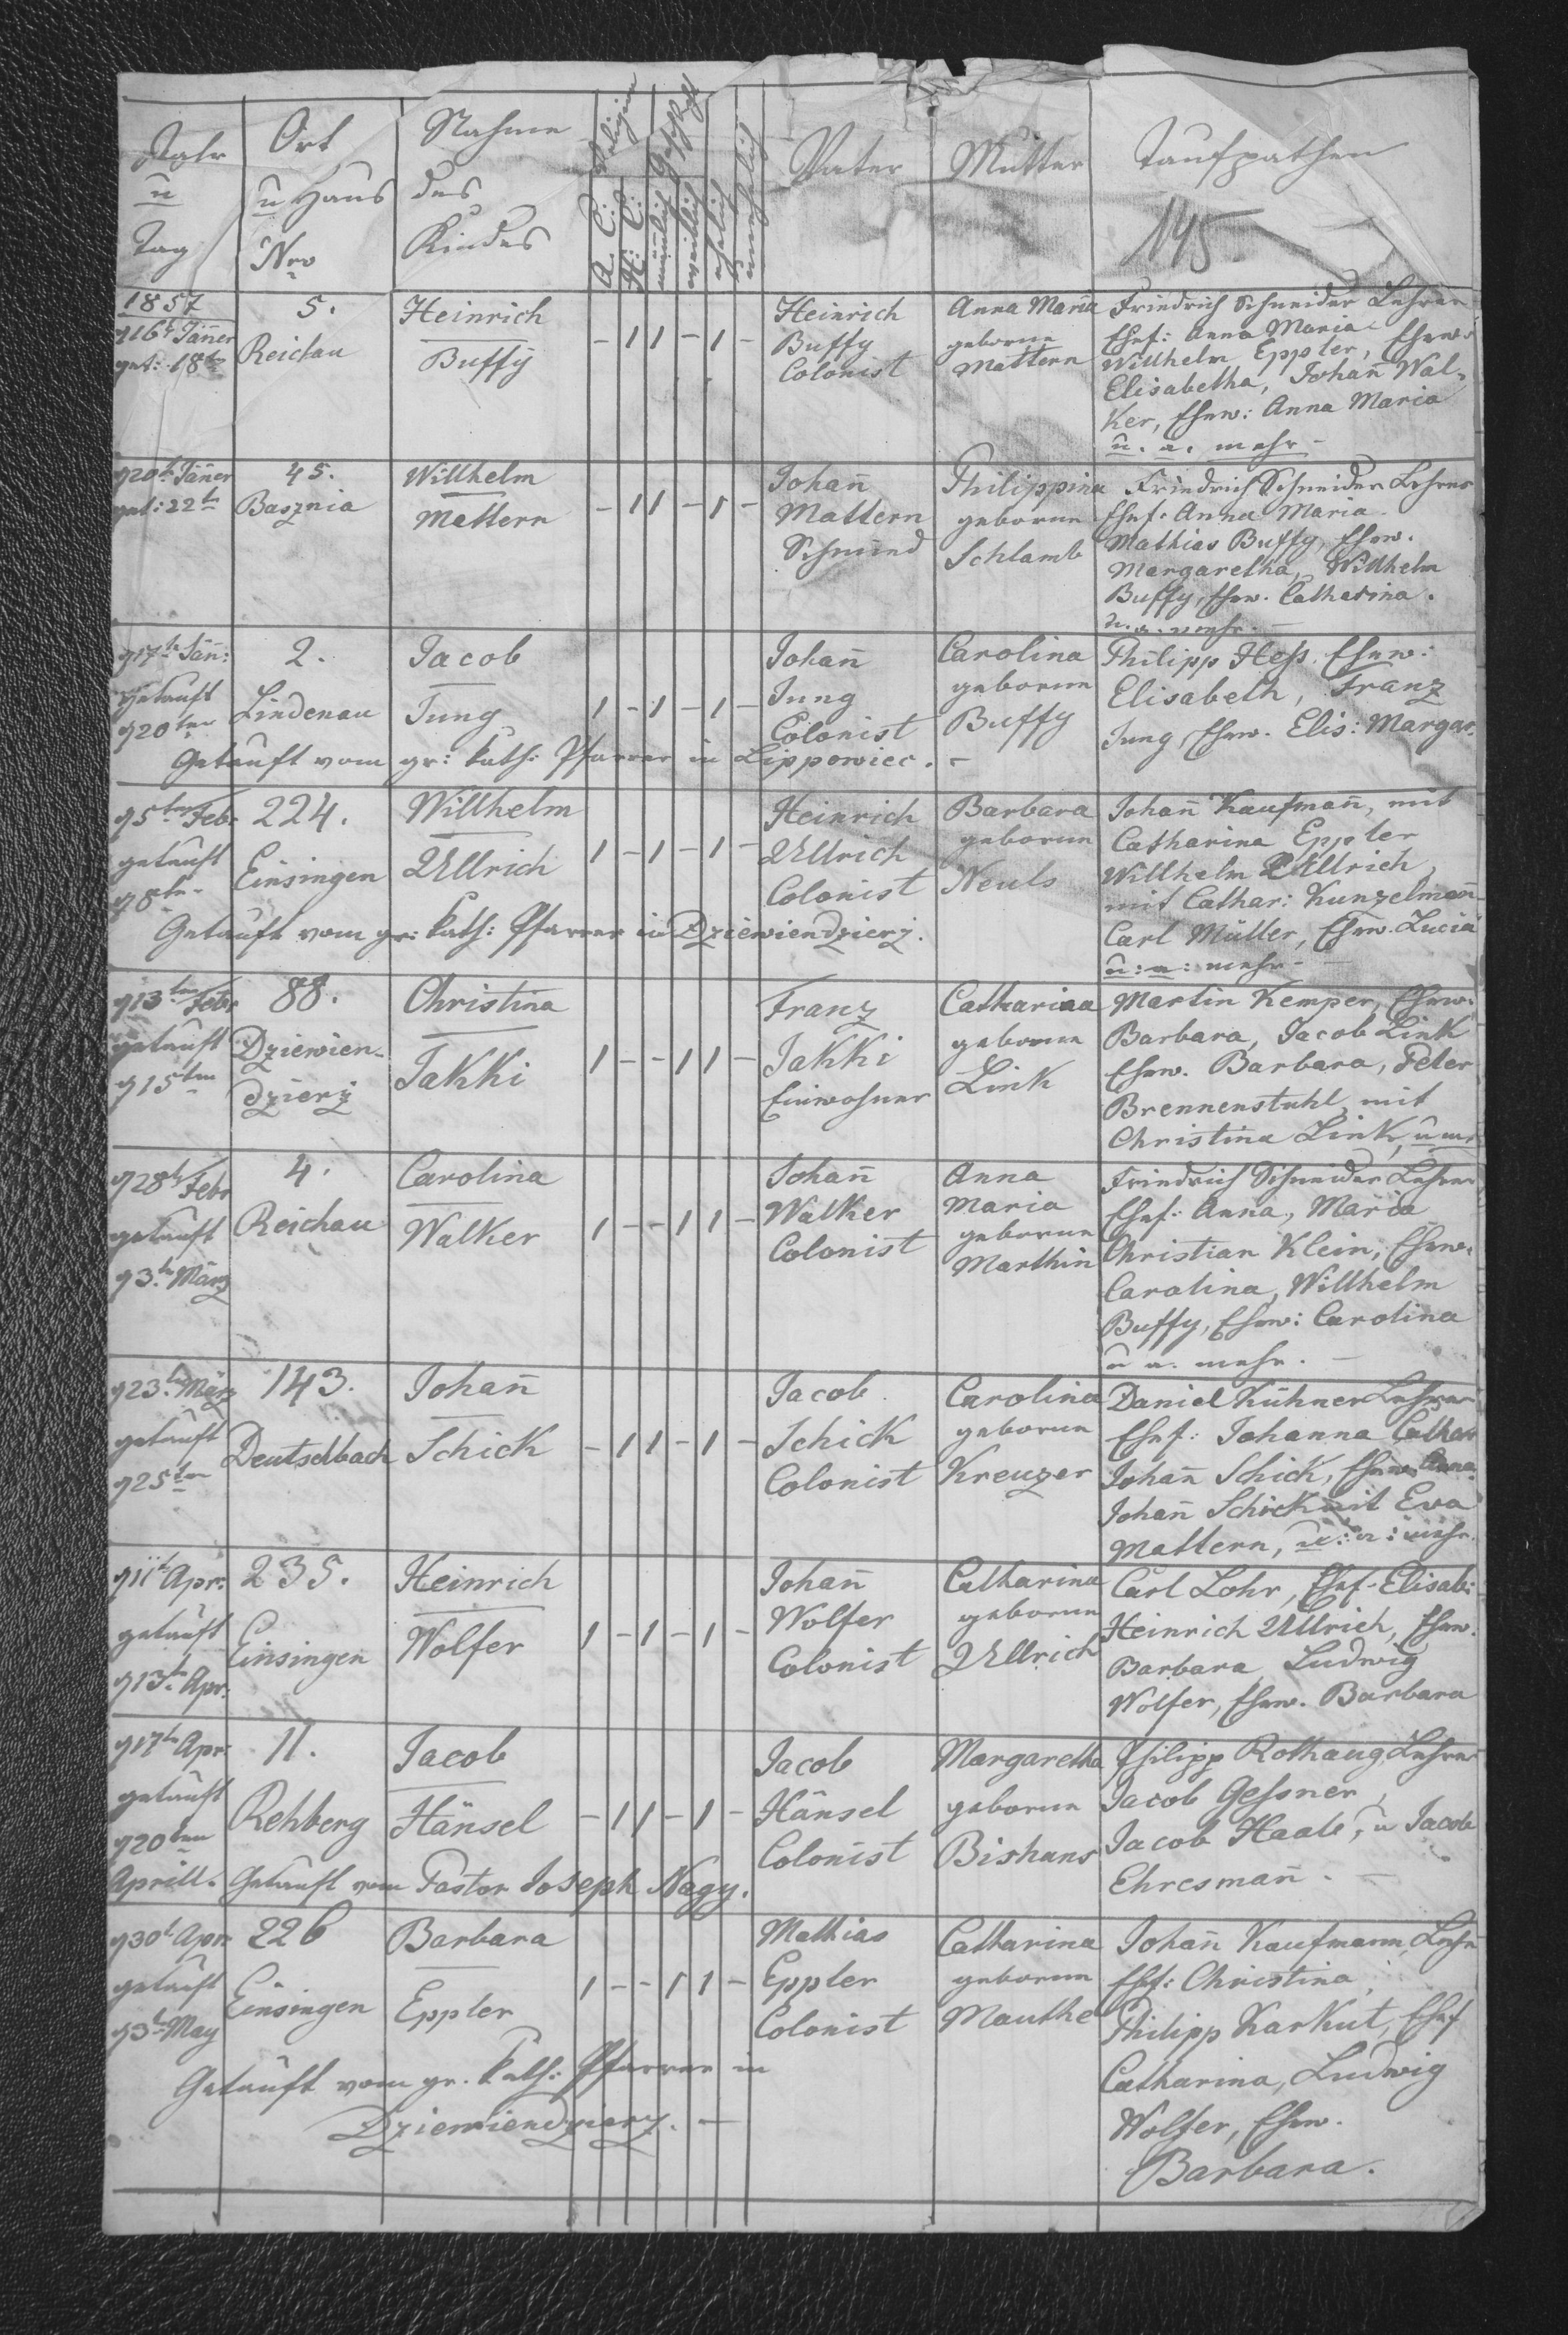 Jahr
u
Tag
Ort
u Haus
Nro
Nahme
des
Kindes
Religion
A. C.
H. C.
Geschlecht
mänlich
weiblich
ehelich
unehelich
Vater
Mutter
Taufpathen
145
1857
g 16t Jäner
get: 18ten
5.
Reichau
Heinrich
Buffy
- 1 1 - 1 -
Heinrich
Buffy
Colonist
Anna Maria
geborene
Mattern
Friedrich Schneider Lehrer
Ehef: Anna Maria
Willhelm Eppler, Ehew:
Elisabetha, Johañ Wal-
Ker, Ehew: Anna Maria
u. a. mehr -
g 20t Jäner
get: 22tn
45.
Basznia
Willhelm
Mattern
- 1 1 - 1 -
Johañ
Mattern
Schmied
Philippina
geborene
Schlamb
Friedrich Schneider Lehrer
Ehef: Anna Maria.
Mathias Buffy, Ehew.
Margaretha, Willhelm
Buffy, Ehew. Catharina.
u. a. mehr. -
g 17tn Jän:
getauft
g 20ten
2.
Lindenau
Jacob
Jung
1 - 1 - 1 -
Johañ
Jung
Colonist
Carolina
geborene
Buffy
Philipp Heß, Ehew:
Elisabeth, Franz
Jung, Ehew. Elis: Margar.
Getauft vom gr: kath: Pfarrer in Lippowiec. -
g 5ten Feb:
getauft
g 8tn
224.
Einsingen
Willhelm
Ullrich
1 - 1 - 1 -
Heinrich
Ullrich
Colonist
Barbara
geborene
Neuls
Johañ Kaufmañ, mit
Catharina Eppler
Willhelm Ullrich,
mit Cathar: Kunzelmañ
Carl Müller, Ehew. Lucia
u: a: mehr -
Getauft vom gr: kath: Pfarrer in Dziewiendzierz.
g 13ten Feb:
getauft
g 15ten
88.
Dziewien-
dzierz
Christina
Jakki
1 - - 1 1 -
Franz
Jakki
Einwohner
Catharina
geborene
Link
Martin Kemper, Ehew:
Barbara, Jacob Link
Ehew. Barbara, Peter
Brennenstuhl, mit
Christina Link,
g 28t Febr
getauft
g 3tn März
4.
Reichau
Carolina
Walker
1 - - 1 1 -
Johañ
Walker
Colonist
Anna
Maria
geborene
Marthin
Friedrich Schneider Lehrer
Ehef: Anna, Maria
Christian Klein, Ehew:
Carolina, Willhelm
Buffy, Ehew: Carolina
u a. mehr. -
g 23tn März
getauft
g 25ten
143.
Deutschbach
Johañ
Schick
- 1 1 - 1 -
Jacob
Schick
Colonist
Carolina
geborene
Kreuzer
Daniel Kühner Lehrer
Ehef: Johanna Cathar
Johañ Schick, Ehew. Anna
Johañ Schick mit Eva
Mattern, u: a: mehr.
g 11t Apr:
getauft
g 13tn Apr:
235.
Einsingen
Heinrich
Wolfer
1 - 1 - 1 -
Johañ
Wolfer
Colonist
Catharina
geborene
Ullrich
Carl Lohr, Ehef. Elisab:
Heinrich Ullrich, Ehew.
Barbara, Ludwig
Wolfer, Ehew. Barbara
g 17tn Apr:
getauft
g 20ten
Aprill.
11.
Rehberg
Jacob
Hänsel
- 1 1 - 1 -
Jacob
Hänsel
Colonist
Margaretha
geborene
Bishans
Philipp Rothaug, Lehrer
Jacob Geßner,
Jacob Haab, u Jacob
Ehresmañ. -
Getauft vom Pastor Joseph Nagy.
g 30t Apr:
getauft
g 3tn May
226
Einsingen
Barbara
Eppler
1 - - 1 1 -
Mathias
Eppler
Colonist
Catharina
geborene
Mauthe
Johañ Kaufmann, Lehr
Ehef: Christina,
Philipp Karkut, Ehef
Catharina, Ludwig
Wolfer, Ehew.
Barbara.
Getauft vom gr. kath: Pfarrer in
Dziewiendzierz. -